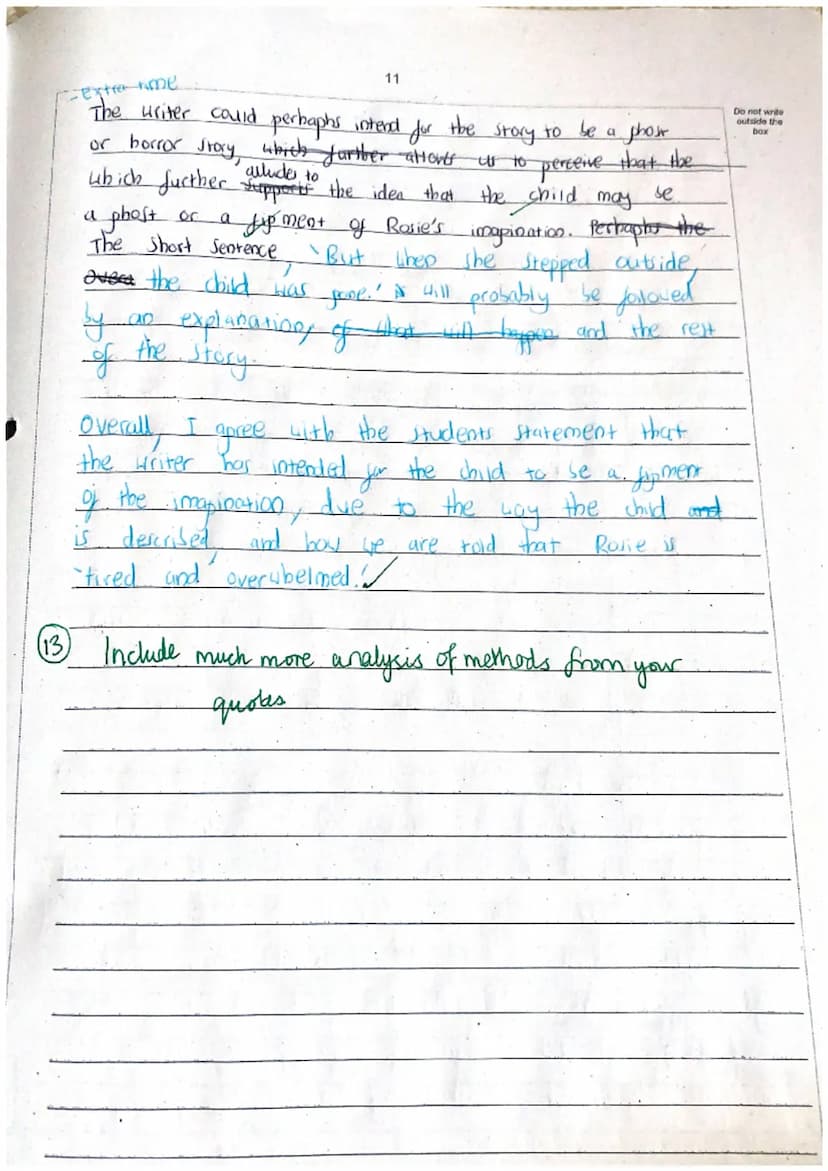 11
- extra time
Do not write
outside the
box
The writer could perhaphs intend for the story to be a ghost
or horror story, which further allows us to perceive that the
which further supports alludes to the idea that the child may be
a ghost or a figment of Rosie's imagination. Perhaphs the
The short sentence, 'But when she stepped outside,
the child was gone.' will probably be followed
by an explanation, of what will happen and the rest
of the story.
Overall, I agree with the students statement that
the writer has intended for the child to be a figment
of the imagination, due to the way the child and
is described, and how we are told that Rosie is
'tired and overwhelmed.'
13 Include much more analysis of methods from your
quotes